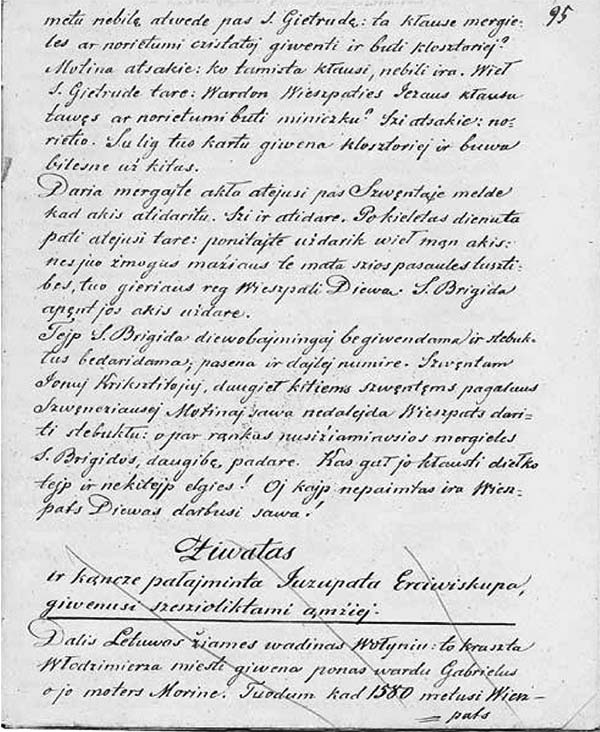 95
metu nebilę atwede pas S. Gietrudę: ta kłause mergie-
les ar norietumi czistatoj giwenti ir buti klosztoriej?
Motina atsakie: ko tamista kłausi, nebili ira. Wieł
S. Gietrude tare: Wardon Wieszpaties Jezaus kłausu
tawęs ar norietumi buti miniczku? Szi atsakie: no-
rietio. Su lig tuo kartu giwena klosztoriej ir buwa
bilesne uż kitas.
Daria mergajte akła atejusi pas Szwęntaję melde
kad akis atidaritu. Szi ir atidare. Po kieletas dienu ta
pati atejusi tare: ponitajte użdarik wieł mąn akis:
nes juo żmogus mażiaus te mata szios pasaules tuszti-
bes, tuo gieriaus reg Wieszpati Diewa. S. Brigida
apęnt jos akis użdare.
Tejp S. Brigida diewobajmingaj begiwendama ir stebuk-
lus bedaridama, pasena ir dajlej numire. Szwęntam
Jonuj Kriksztitojuj, daugieł kitiems szwęntęms pagalaus
Szwęncziausej Motinaj sawa nedalejda Wieszpats dari-
ti stebuktu: o par rąnkas nusiżiamiawsios mergieles
S. Brigidos, daugibę, padare. Kas gał jo kłausti diełko
tejp ir nekitejp elgies! Oj kajp nepaimtas ira Wiesz-
pats Diewas darbusi sawa!
Ziwatas
ir kąncze pałajminta Juzupata Erciwiskupa,
giwenusi szeszioliktami ąmżiej.
Dalis Letuwos żiames wadinas Wołyniu: to kraszta
Włodzimierza miesti giwena ponas wardu Gabrielus
o jo moters Morine. Tuodum kad 1580 metusi Wiesz-
pats